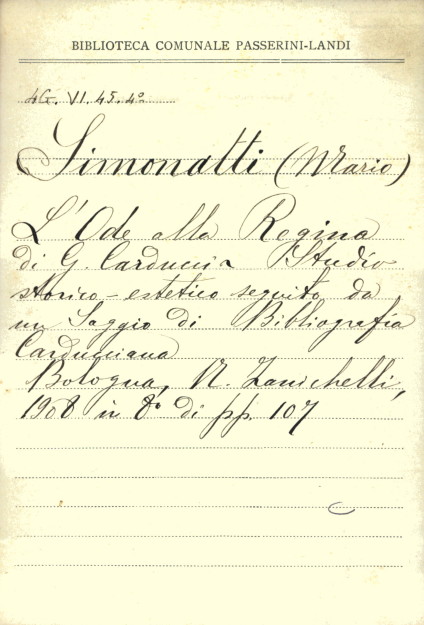 BIBLIOTECA COMUNALE PASSERINI-LANDI
4G. VI. 45. 4º
Simonatti (Mario)
L'Ode alla Regina
di G. Carducci Studio
storico-estetico seguito da
un Saggio di Bibliografia
Carducciana
Bologna, N. Zanichelli,
1908 in 8º di pp. 107